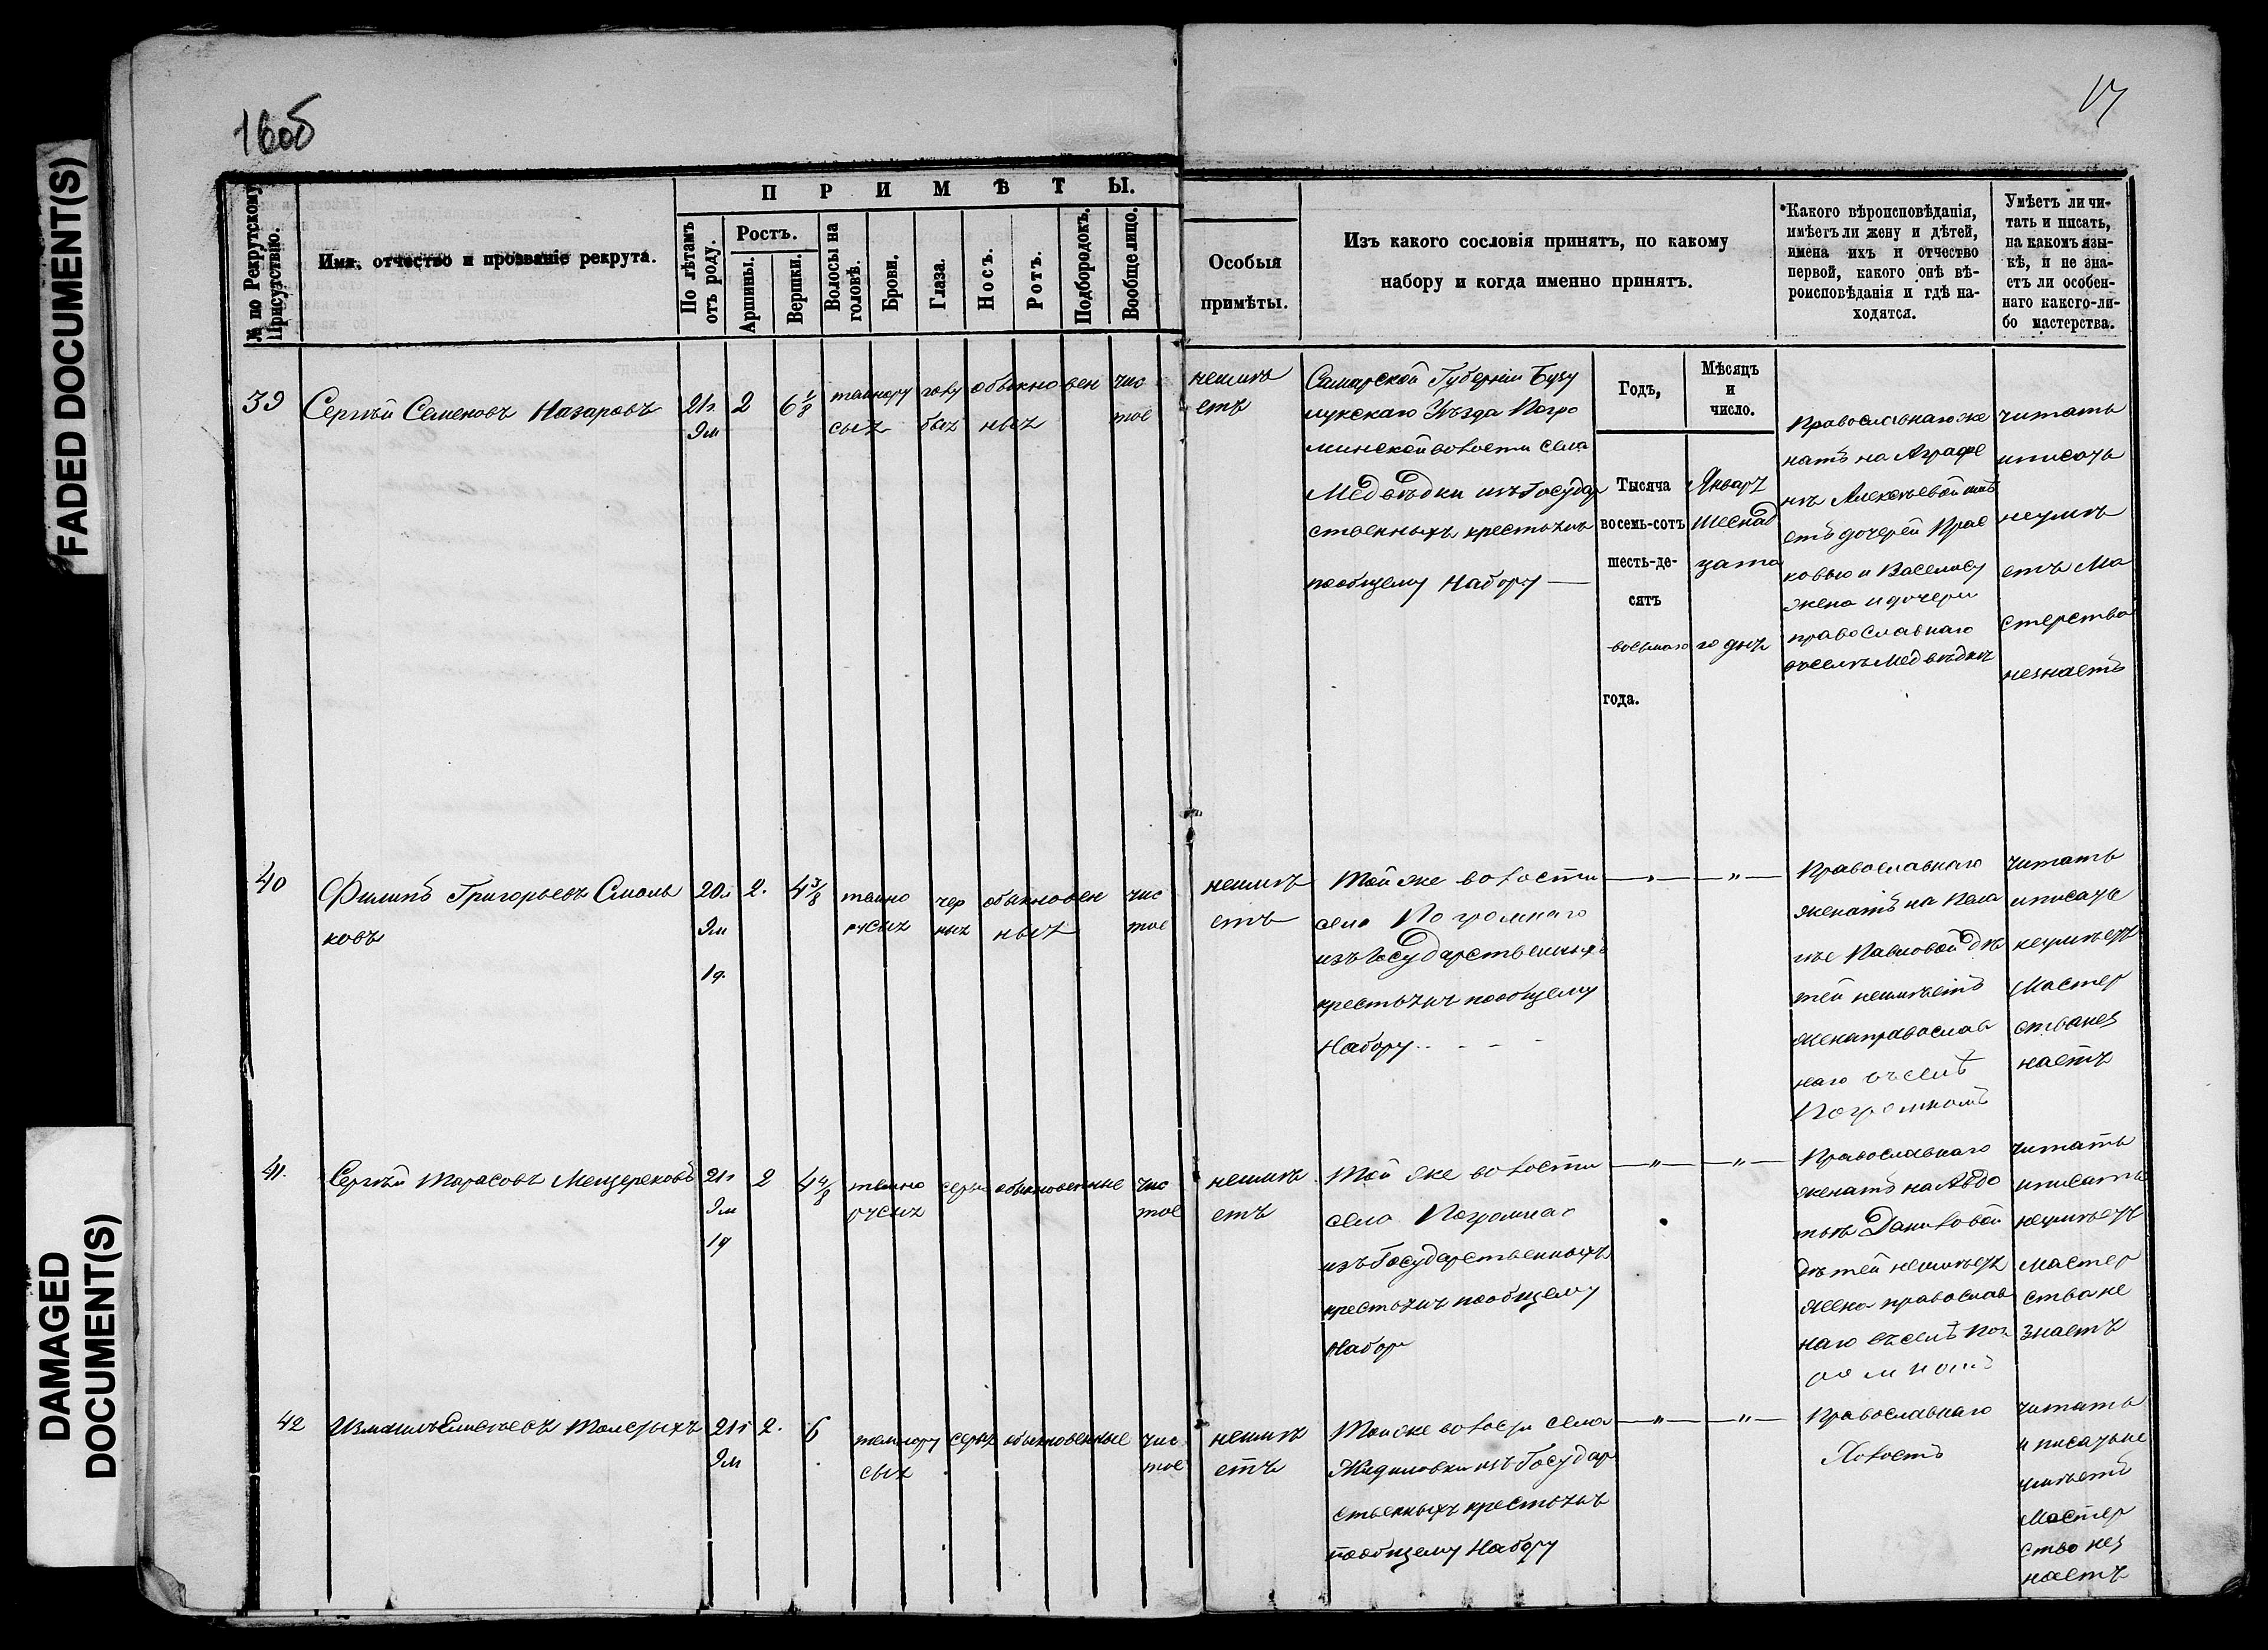 FADED DOCUMENT(S)
DAMAGED
DOCUMENT(S)
16об
17
№ по Рекрутскому
Присутствію.
Имя, отчество и прозваніе рекрута.
ПРИМѢТЫ.
По лѣтамъ
отъ роду.
Ростъ.
Аршины.
Вершки.
Волосы на
головѣ.
Брови.
Глаза.
Носъ.
Ротъ.
Подбородокъ.
Вообще лицо.
Особыя
примѣты.
Изъ какого сословія принятъ, по какому
набору и когда именно принятъ.
Какого вѣроисповѣданія,
имѣетъ ли жену и дѣтей,
имена ихъ и отчество
первой, какого онѣ вѣ-
роисповѣданія и гдѣ на-
ходятся.
Умѣетъ ли чи-
тать и писать,
на какомъ язы-
кѣ, и не зна-
етъ ли особен-
наго какого-ли-
бо мастерства.
39
Сергѣй Семеновъ Назаровъ
21г
9м
2
6 1/8
темнору
сыхъ
голу
быхъ
обыкновен
ныхъ
чис
тое
неимѣ
етъ
Самарской Губерніи Бузу
лукскаго Уѣзда Погро
минской волости села
Медвѣдки изъ Государ
ственныхъ крестьянъ
пообщему Набору —
Годъ,
Мѣсяцъ
и
число.
Тысяча
восемь-сотъ
шесть-де-
сятъ
восьмаго
года.
Январ
Шеснад
цата
го дня
Православнаго же
натъ на Аграфе
нѣ Алексѣевой имѣ
етъ дочерей Прас
ковью и Василису
жена и дочери
православнаго
въселѣ Медвѣдкѣ
читать
иписать
неумѣ
етъ Ма
стерства
незнаетъ
40
Филипъ Григорьевъ Смоль
ковъ
20л
9м
1д
2.
4 3/8
темно
русыхъ
чер
ныхъ
обыкновен
ныхъ
чис
тое
неимѣ
етъ
Той же волости
села Погромнаго
изъ Государственныхъ
крестьянъ пообщему
Набору. - - -
—„—
—„—
Православнаго
женатъ на Пела
геѣ Павловой дѣ
тей неимѣетъ
женаправослав
наго въселѣ
Погромномъ
читать
иписать
неумѣетъ
Мастер
стванез
наетъ
41.
Сергѣй Тарасовъ Мещеряковъ
21г
9м
1д
2
4 4/8
темно
русыхъ
серы
обыкновенные
чис
тое
неимѣ
етъ
Той же волости
села Погромнаго
изъ Государственныхъ
крестьянъ пообщему
Набор
—„—
—„—
Православнаго
женатъ на Авдо
тьѣ Даниловой
дѣтей неимѣетъ
жена православ
наго въселѣ Пог
ромномъ
читать
иписать
неумѣетъ
мастер
ства не
знаетъ
42
Измаилъ Елисѣевъ Толстыхъ
21г
9м
2.
6
темнору
сыхъ
серых
обыкновенные
чис
тое
неимѣ
етъ
Тойже волости села
Жидиловки изъ Государ
ственныхъ крестьянъ
пообщему Набору
—„—
—„—
Православнаго
Холостъ
читать
и писатьне
умѣетъ
Мастер
ство нез
наетъ